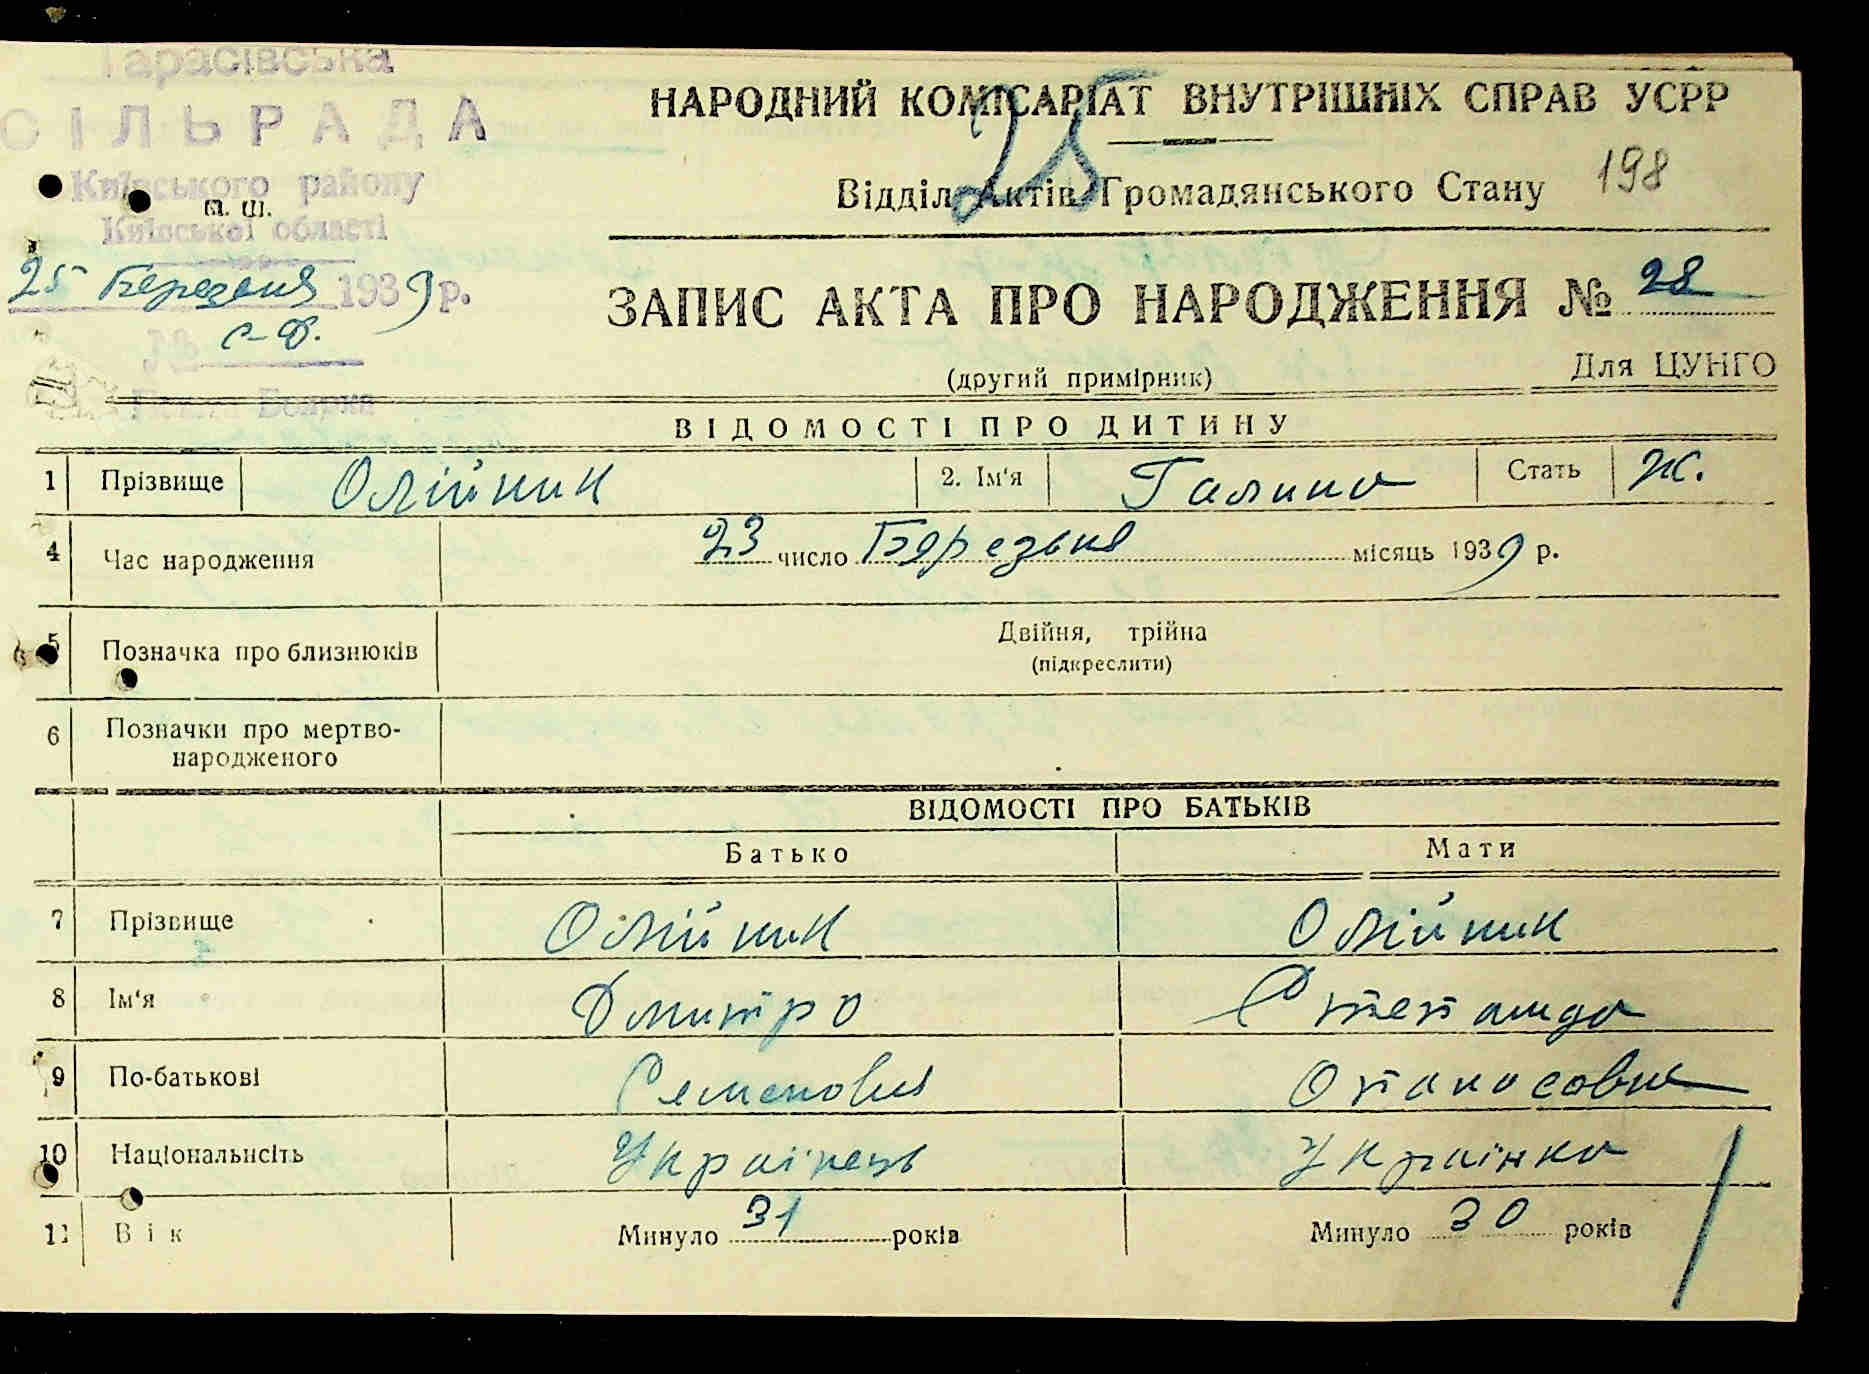 Тарасівська
СІЛЬРАДА
Київського району
п. ш.
Київської області
25 Березня 1939 р.
с-ф.
№
Боярка
НАРОДНИЙ КОМІСАРІАТ ВНУТРІШНІХ СПРАВ УСРР
25
Відділ Актів Громадянського Стану 198
ЗАПИС АКТА ПРО НАРОДЖЕННЯ № 28
(другий примірник) Для ЦУНГО
ВІДОМОСТІ ПРО ДИТИНУ
1 Прізвище Олійник 2. Ім'я Галина Стать Ж.
4 Час народження 23 число Березня місяць 1939 р.
5 Позначка про близнюків Двійня, трійна
(підкреслити)
6 Позначки про мертво-
народженого
ВІДОМОСТІ ПРО БАТЬКІВ
Батько Мати
7 Прізвище Олійник Олійник
8 Ім'я Дмитро Степанида
9 По-батькові Семенович Опанасовна
10 Національнсіть Українець Українка
11 Вік Минуло 31 років Минуло 30 років